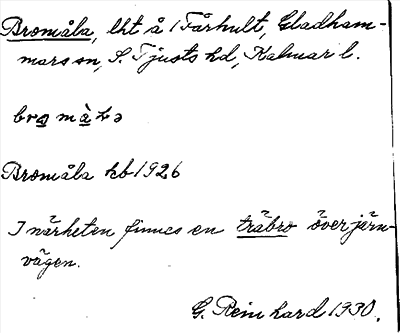 Bromåla, lht å 1 Fårhult, Gladham-
mars sn, S. Tjusts hd, Kalmar l.
Bromåla kb 1926
I närheten finnes en träbro över järn-
vägen.
G. Reinhard 1930.